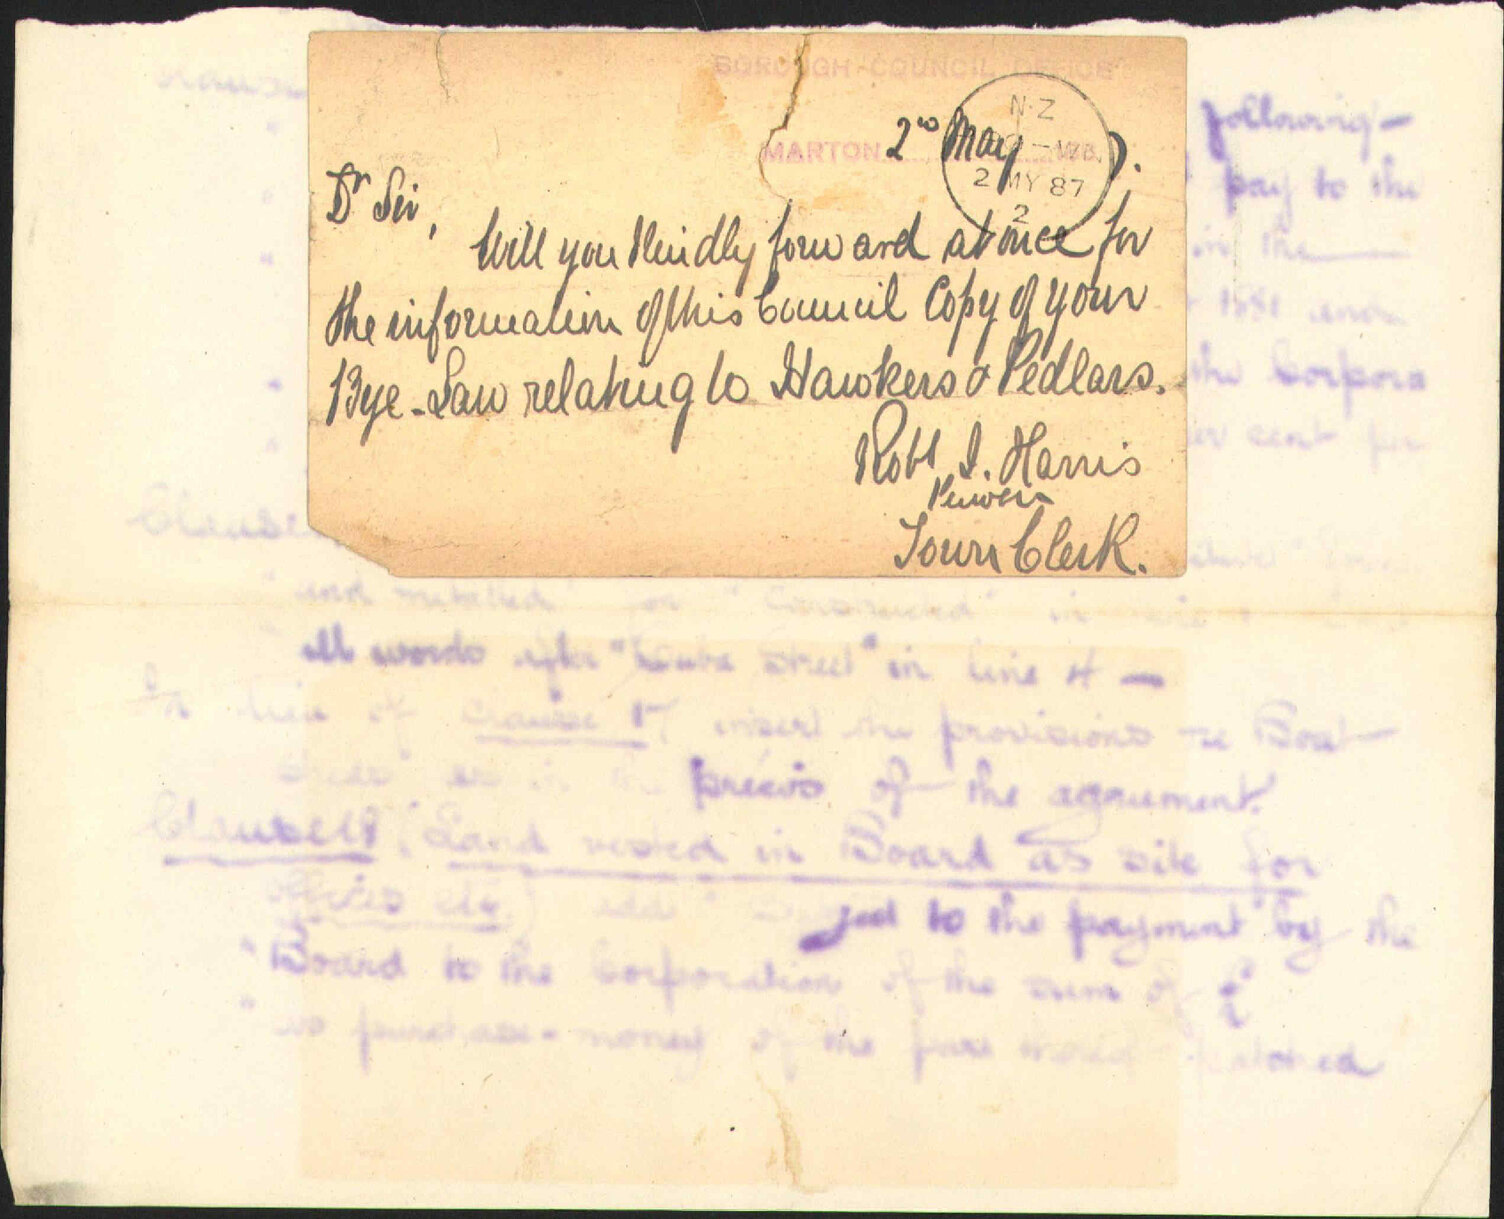 BOROUGH COUNCIL OFFICE
MARTON 2nd May 7.
N·Z
2 MY 87
2
Dr Sir,
Will you kindly forward at once for
the information of this Council Copy of your
Bye-Law relating to Hawkers & Pedlars.
Robt I. Harris
Town Clerk.
following —
pay to the
in the
1881
the Corpora
cent for
Clause
and metalled" for "Constructed" in
all words after "Cuba Street" in line 4 —
In lieu of Clause 17 insert the provisions re Boat
sheds as in the précis of the agreement.
Clause 18 (Land vested in Board as site for
offices etc.) add "Subject to the payment by the
"Board to the Corporation of the sum of £
"as purchase-money of the